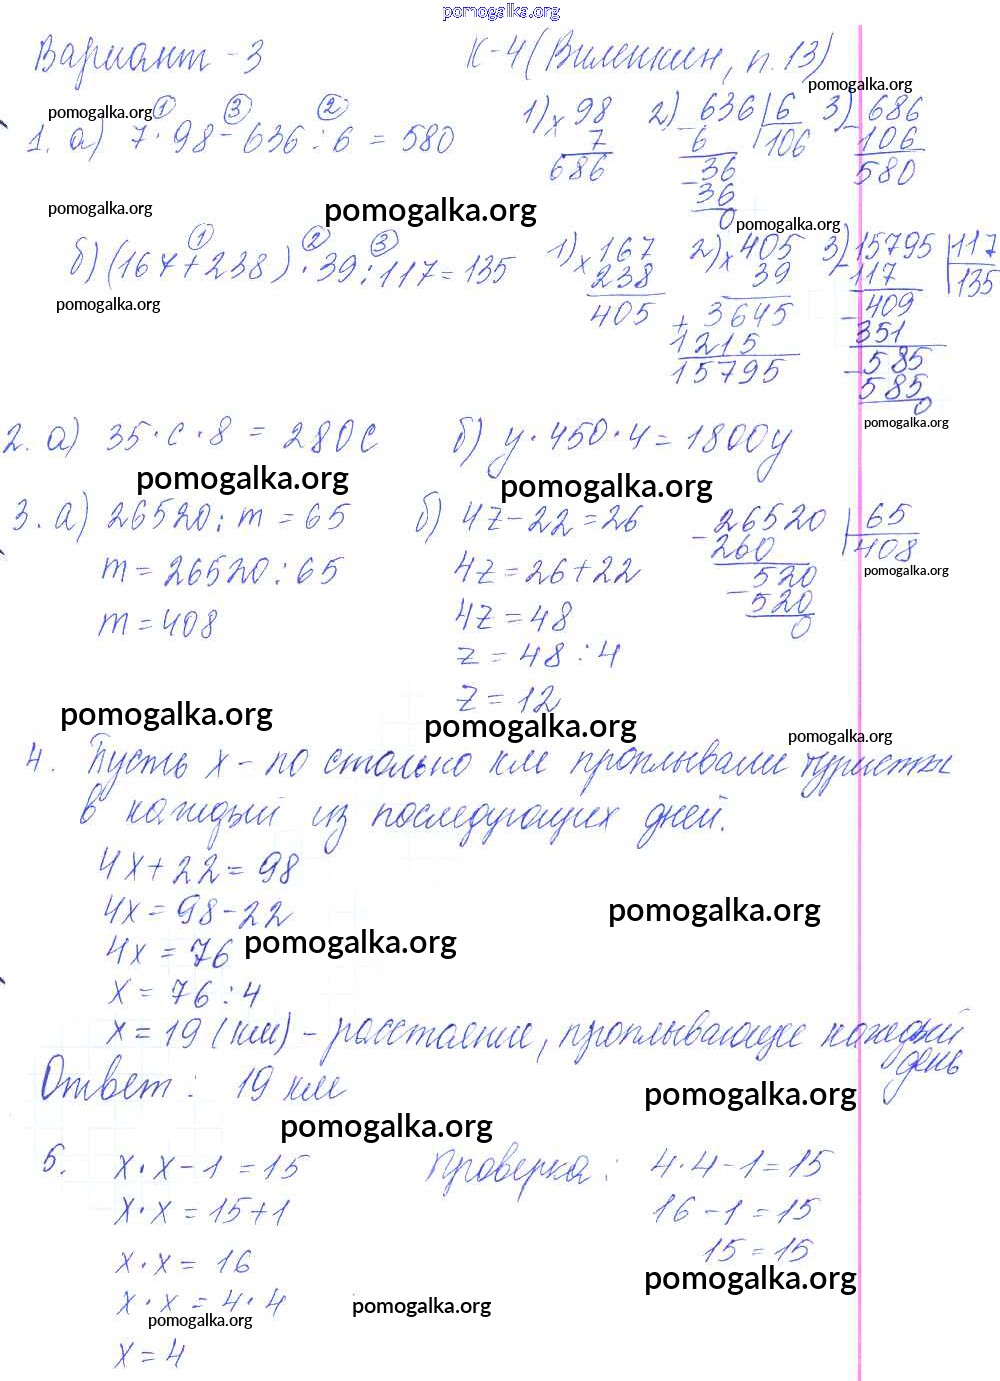 pomogalka.org
Вариант-3 К-4 (Виленкин, п.13)
pomogalka.org
pomogalka.org
1. а) 7 · 98 - 636 : 6 = 580
① ③ ②
1) × 98
7
686
2) - 636 | 6
6 106
- 36
36
0
3) - 686
106
580
pomogalka.org
pomogalka.org
pomogalka.org
б) (167 + 238) · 39 : 117 = 135
① ② ③
1) × 167
238
405
2) × 405
39
+ 3645
1215
15795
3) - 15795 | 117
117 135
- 409
351
- 585
585
0
pomogalka.org
pomogalka.org
2. а) 35 · с · 8 = 280с б) у · 450 · 4 = 1800у
pomogalka.org
pomogalka.org
3. а) 26520 : m = 65
m = 26520 : 65
m = 408
б) 4z - 22 = 26
4z = 26 + 22
4z = 48
z = 48 : 4
z = 12
- 26520 | 65
260 408
- 520
520
0
pomogalka.org
pomogalka.org
pomogalka.org
pomogalka.org
4. Пусть х - по столько км проплывали туристы
в каждый из последующих дней.
4х + 22 = 98
4х = 98 - 22
pomogalka.org
4х = 76
pomogalka.org
х = 76 : 4
х = 19 (км) - расстояние, проплывающее каждый
день
Ответ: 19 км
pomogalka.org
pomogalka.org
5. х · х - 1 = 15
х · х = 15 + 1
х · х = 16
х · х = 4 · 4
х = 4
Проверка: 4 · 4 - 1 = 15
16 - 1 = 15
15 = 15
pomogalka.org
pomogalka.org
pomogalka.org